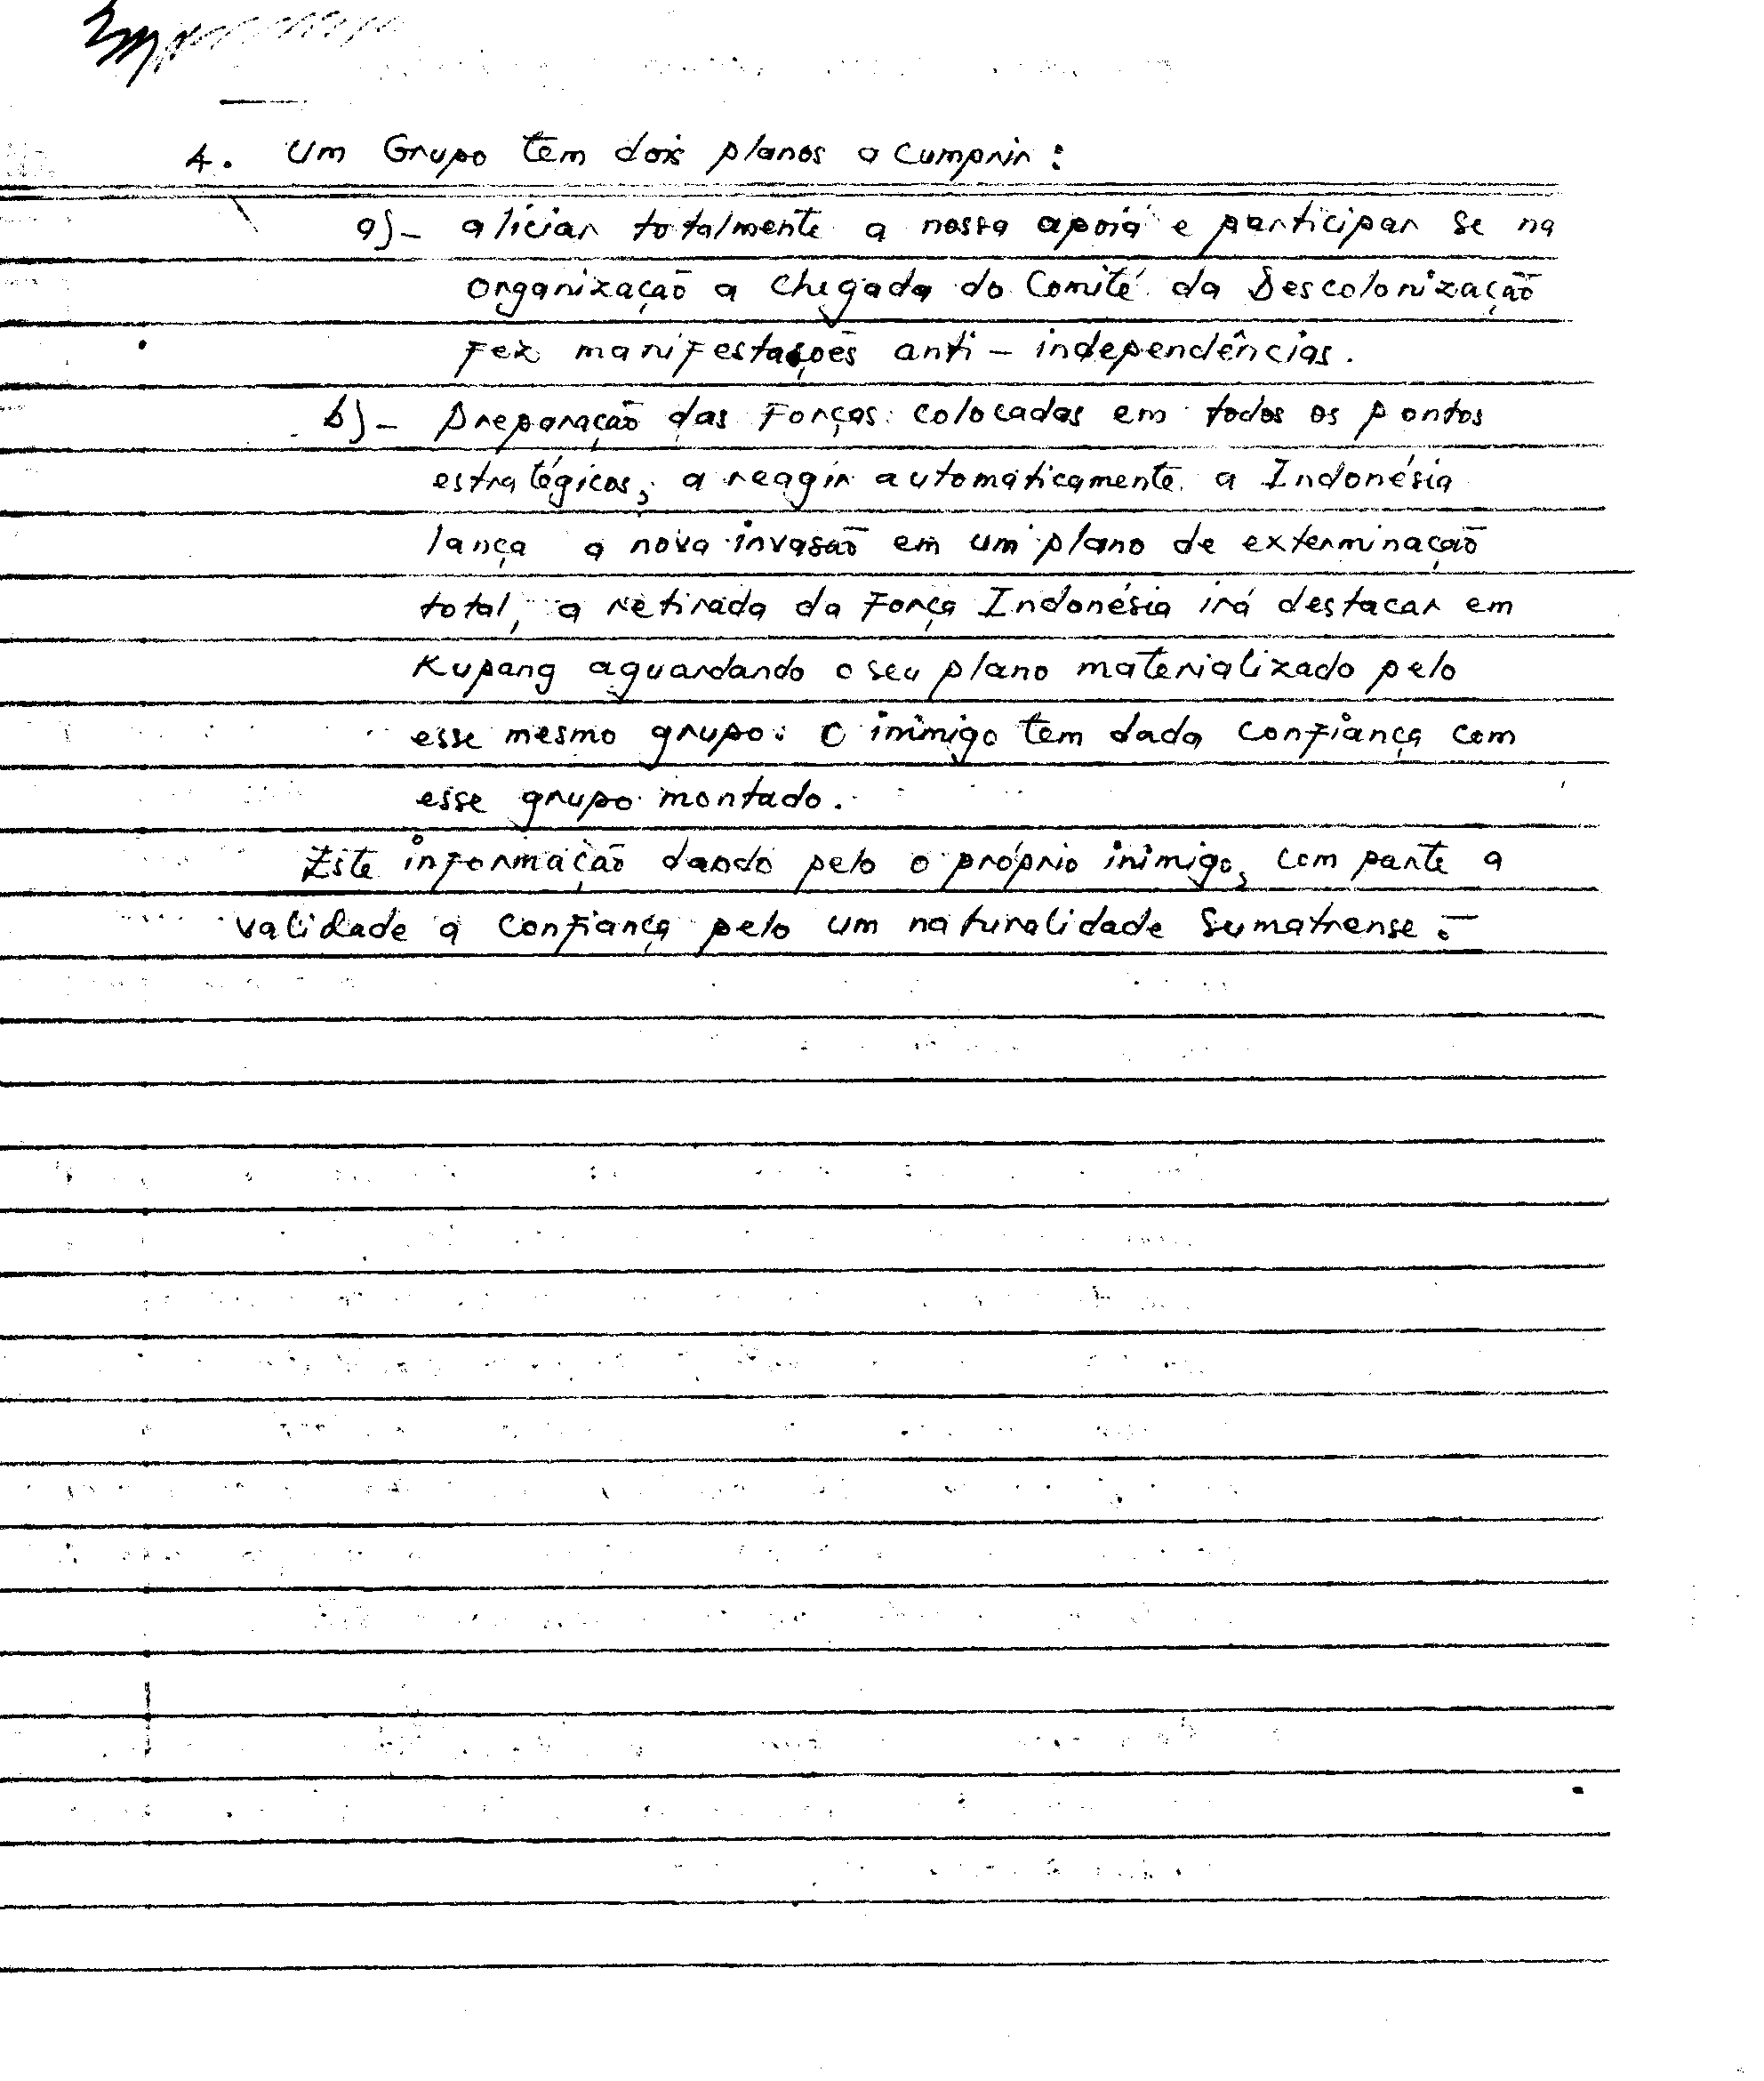 4. Um Grupo tem dois planos a cumprir:
a)- aliciar totalmente a nossa apoia e participar se na
organização a chegada do Comité da Descolonização
fez manifestações anti-independências.
b)- Preparação das Forças colocadas em todos os pontos
estratégicos, a reagir automáticamente a Indonésia
lança a nova invasão em um plano de exterminação
total, a retirada da Força Indonésia irá destacar em
Kupang aguardando o seu plano materializado pelo
esse mesmo grupo: O inimigo tem dada confiança com
esse grupo montado.
Este informação dando pelo o próprio inimigo, com parte a
validade a confiança pelo um naturalidade Sumatrense.-